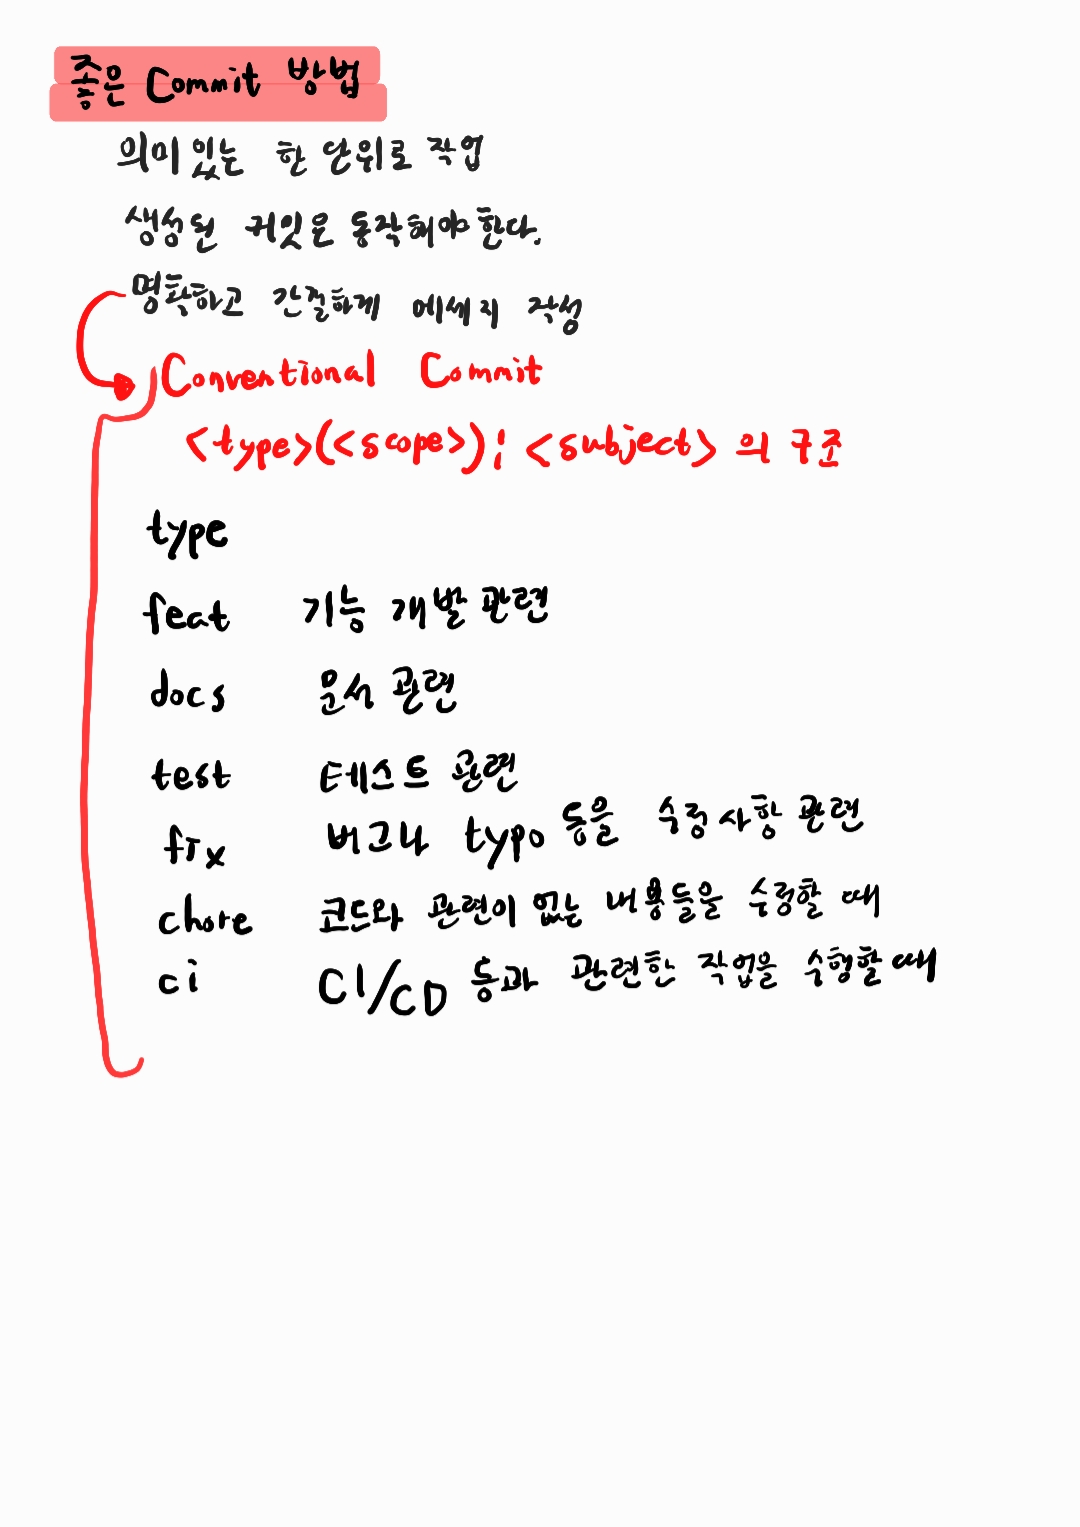 좋은 Commit 방법
의미 있는 한 단위로 작업
생성된 커밋은 동작해야 한다.
명확하고 간결하게 메세지 작성
Conventional Commit
<type>(<scope>): <subject> 의 구조
type
feat 기능 개발 관련
docs 문서 관련
test 테스트 관련
fix 버그나 typo 등을 수정 사항 관련
chore 코드와 관련이 없는 내용들을 수정할 때
ci CI/CD 등과 관련한 작업을 수행할 때